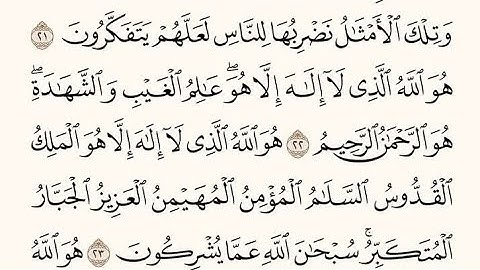 وَتِلْكَ ٱلْأَمْثَٰلُ نَضْرِبُهَا لِلنَّاسِ لَعَلَّهُمْ يَتَفَكَّرُونَ ٢١
هُوَ ٱللَّهُ ٱلَّذِى لَآ إِلَٰهَ إِلَّا هُوَۖ عَٰلِمُ ٱلْغَيْبِ وَٱلشَّهَٰدَةِۖ
هُوَ ٱلرَّحْمَٰنُ ٱلرَّحِيمُ ٢٢ هُوَ ٱللَّهُ ٱلَّذِى لَآ إِلَٰهَ إِلَّا هُوَ ٱلْمَلِكُ
ٱلْقُدُّوسُ ٱلسَّلَٰمُ ٱلْمُؤْمِنُ ٱلْمُهَيْمِنُ ٱلْعَزِيزُ ٱلْجَبَّارُ
ٱلْمُتَكَبِّرُۚ سُبْحَٰنَ ٱللَّهِ عَمَّا يُشْرِكُونَ ٢٣ هُوَ ٱللَّهُ